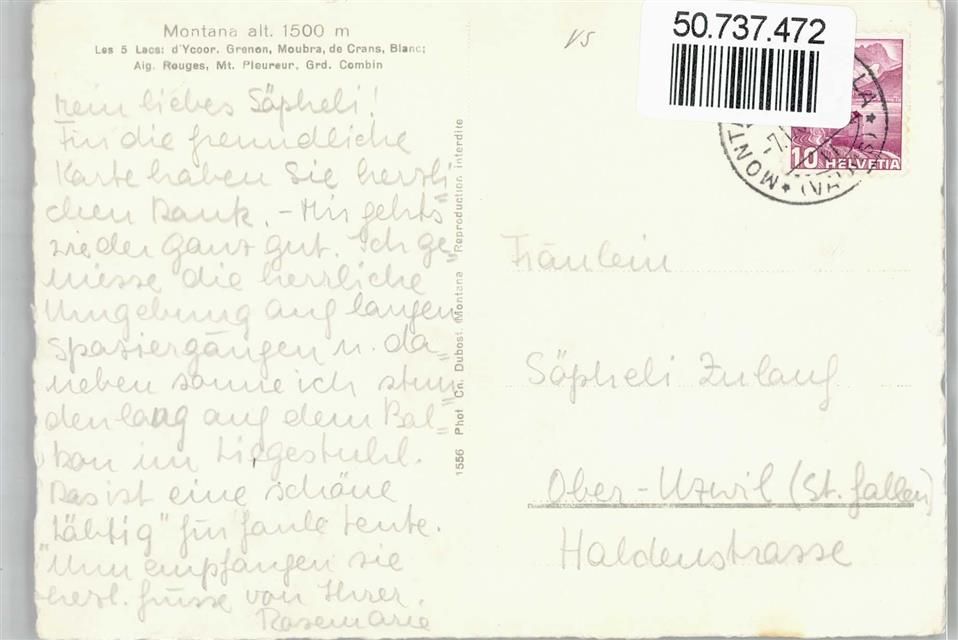 Montana alt. 1500 m
Les 5 Lacs: d'Ycoor, Grenon, Moubra, de Crans, Blanc;
Aig. Rouges, Mt. Pleureur, Grd. Combin
VS
50.737.472
10 HELVETIA
Mein liebes Säpheli!
Für die freundliche
Karte haben Sie herzli
chen Dank. - Mir gehts
wieder ganz gut. Ich ge=
niesse die herrliche
Umgebung auf langen
Spaziergängen u. da=
neben sonne ich stun=
denlang auf dem Bal=
kon im Liegestuhl.
Das ist eine schöne
"Lähtig" für faule Leute.
Nun empfangen Sie
herzl. Grüsse von Ihrer
Rosemarie
1556 Phot Ch. Dubost, Montana Reproduction interdite
Fräulein
Säpheli Zulauf
Ober-Uzwil (St. Gallen)
Haldenstrasse